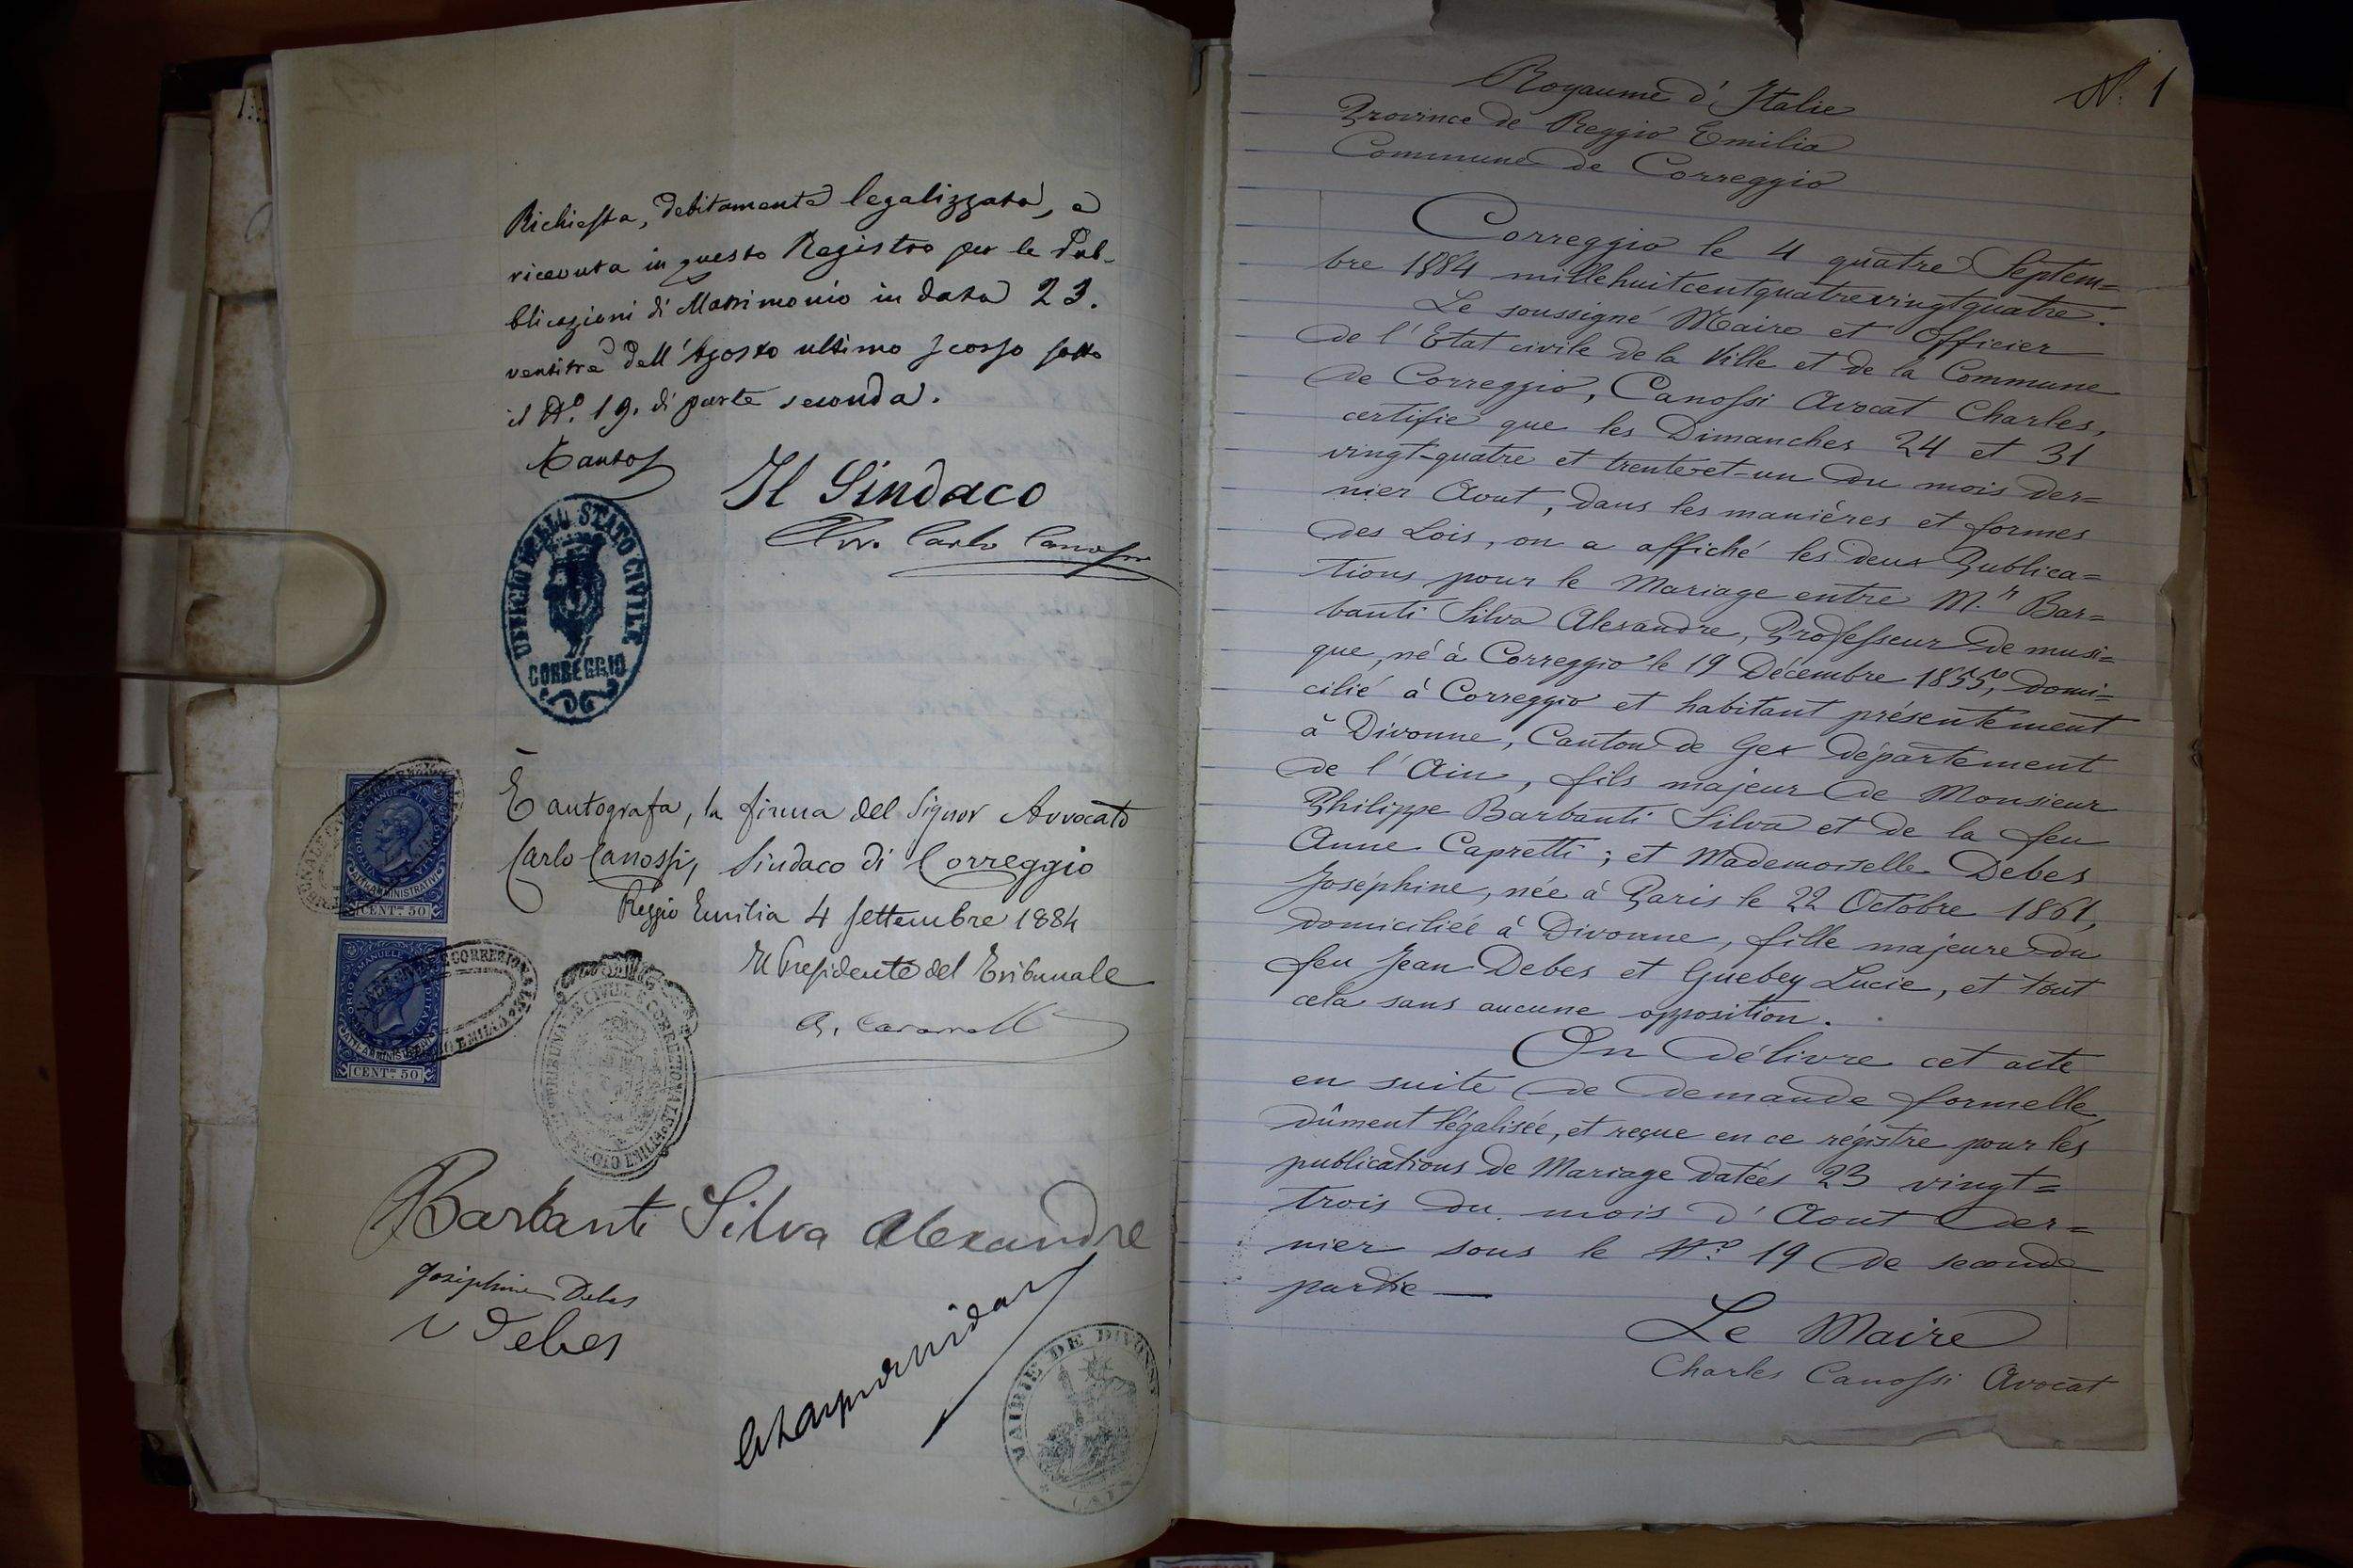 Richiesta, debitamente legalizzata, e
ricevuta in questo Registro per le Pub-
blicazioni di Matrimonio in data 23.
ventitre dell'Agosto ultimo scorso sotto
il N.º 19. di parte seconda.
Il Sindaco
Avv. Carlo Canossi
UFFICIO DELLO STATO CIVILE
CORREGGIO
È autografa, la firma del Signor Avvocato
Carlo Canossi, Sindaco di Correggio
Reggio Emilia 4 Settembre 1884
Il Presidente del Tribunale
ATTI AMMINISTRATIVI
CENT. 50
ATTI AMMINISTRATIVI
CENT. 50
TRIBUNALE CIVILE E CORREZIONALE
REGGIO EMILIA
Barbanti Silva Alexandre
Joséphine Debes
Debes
MAIRIE DE DIVONNE
(AIN)
N.º 1
Royaume d'Italie
Province de Reggio Emilia
Commune de Correggio
Correggio le 4 quatre Septem=
bre 1884 millehuitcentquatrevingtquatre.
Le soussigné Maire et Officier
de l'Etat civile de la Ville et de la Commune
de Correggio, Canossi Avocat Charles,
certifie que les Dimanches 24 et 31
vingt-quatre et trente-et-un du mois der=
nier Aout, dans les manières et formes
des Lois, on a affiché les deux Publica=
tions pour le Mariage entre M.r Bar=
banti Silva Alexandre, Professeur de musi=
que, né à Correggio le 19 Décembre 1855, domi=
cilié à Correggio et habitant présentement
à Divonne, Canton de Gex département
de l'Ain, fils majeur de Monsieur
Philippe Barbanti Silva et de la feu
Anne Capretti; et Mademoiselle Debes
Joséphine, née à Paris le 22 Octobre 1861,
domiciliée à Divonne, fille majeure du
feu Jean Debes et Guebey Lucie, et tout
cela sans aucune opposition.
On délivre cet acte
en suite de demande formelle,
dûment légalisée, et reçue en ce régistre pour les
publications de Mariage datées 23 vingt=
trois du mois d'Aout der=
nier sous le N.º 19 de seconde
partie —
Le Maire
Charles Canossi Avocat